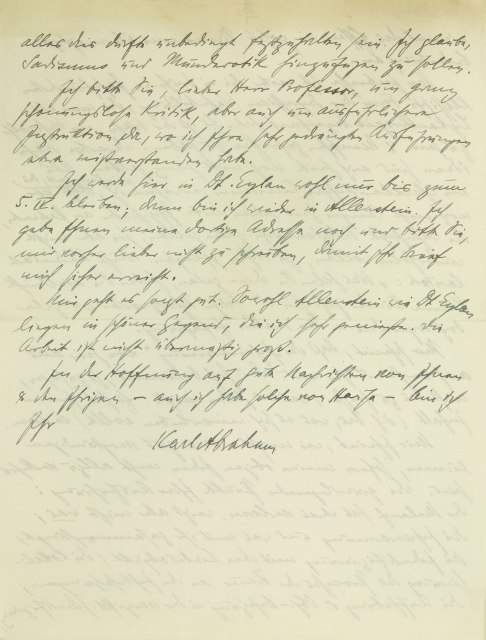 alles dies dürfte unbedingt festzuhalten sein. Ich glaube,
Sadismus und Munderotik hinzufügen zu sollen.
Ich bitte Sie, lieber Herr Professor, um ganz
schonungslose Kritik, aber auch um ausführlichere
Instruktion da, wo ich Ihre sehr gedrängten Ausführungen
etwa mißverstanden habe.
Ich werde hier in Dt. Eylau wohl nur bis zum
5. IV. bleiben; dann bin ich wieder in Allenstein. Ich
gebe Ihnen meine dortige Adresse noch und bitte Sie,
mir vorher lieber nicht zu schreiben, damit Ihr Brief
mich sicher erreicht.
Mir geht es jetzt gut. Sowohl Allenstein wie Dt. Eylau
liegen in schöner Gegend, die ich sehr genieße. Die
Arbeit ist nicht übermäßig groß.
In der Hoffnung auf gute Nachrichten von Ihnen
& den Ihrigen – auch ich habe solche von Hause – bin ich
Ihr
Karl Abraham